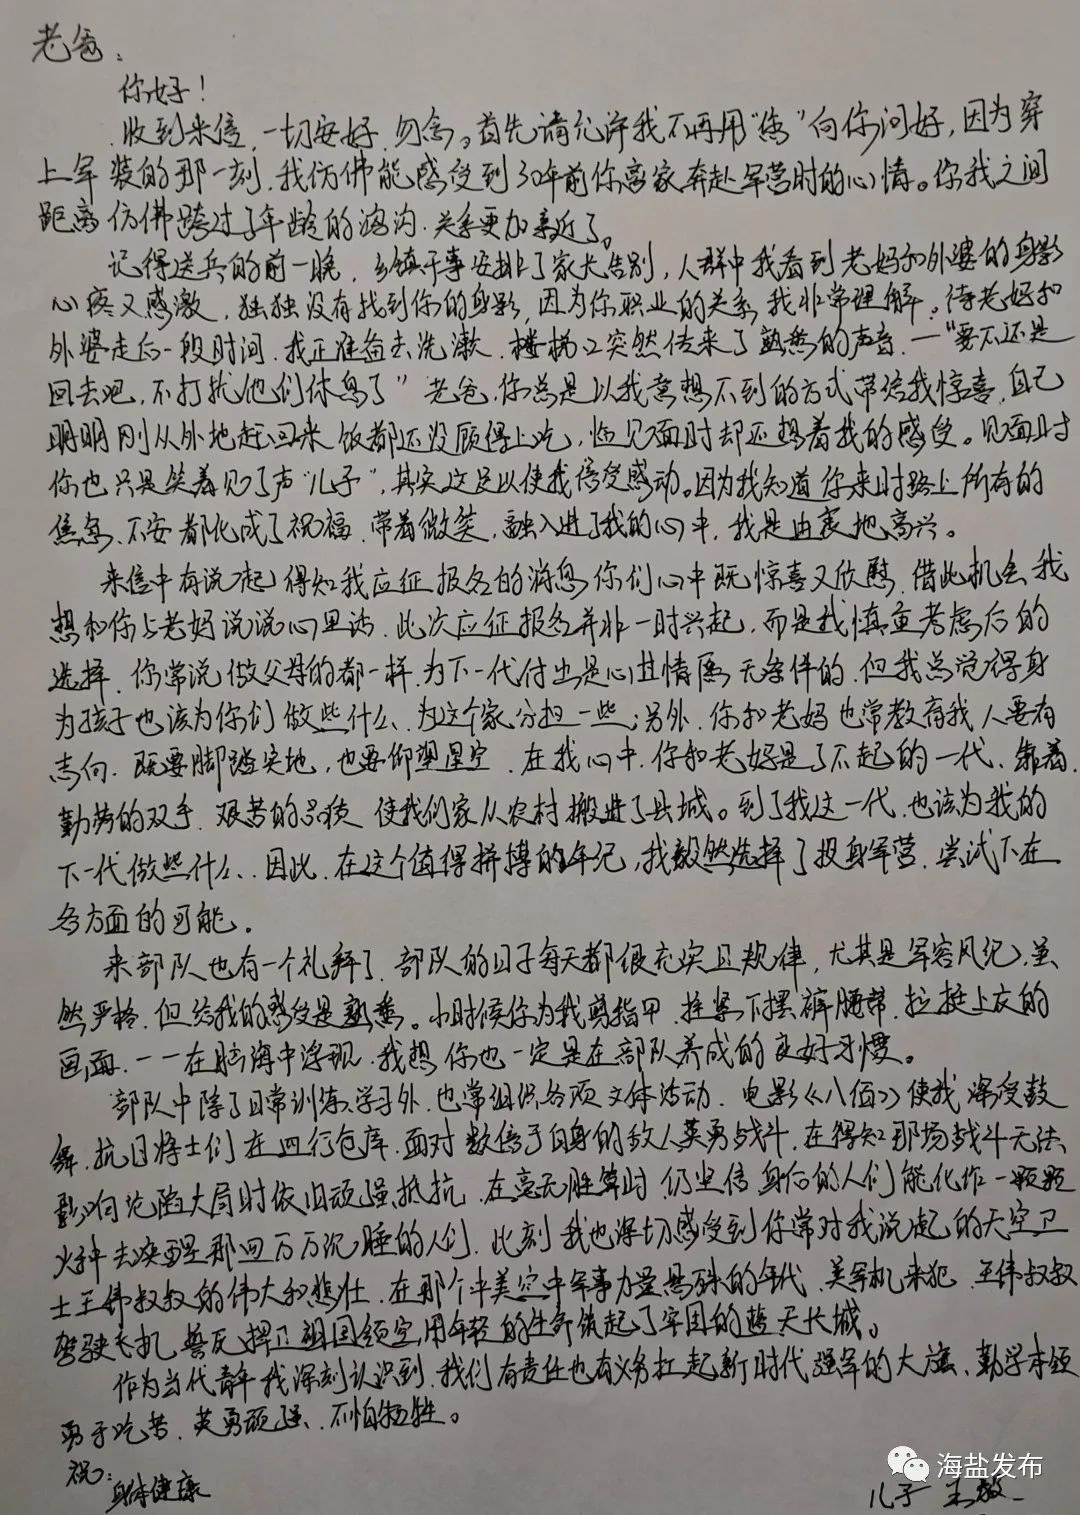 老爸：
你好！
收到来信，一切安好，勿念。首先请允许我不再用“您”向你问好，因为穿
上军装的那一刻，我仿佛能感受到30年前你离家奔赴军营时的心情。你我之间
距离仿佛跨过了年龄的鸿沟，关系更加亲近了。
记得送兵的前一晚，乡镇干事安排了家长告别，人群中我看到老妈和外婆的身影
心疼又感激，独独没有找到你的身影，因为你职业的关系，我非常理解。待老妈和
外婆走后一段时间，我正准备去洗漱，楼梯口突然传来了熟悉的声音，一“要不还是
回去吧，不打扰他们休息了”老爸，你总是以我意想不到的方式带给我惊喜，自己
明明刚从外地赶回来饭都还没顾得上吃，临见面时却还想着我的感受。见面时
你也只是笑着见了声“儿子”，其实这足以使我倍受感动。因为我知道你来时路上所有的
焦急、不安都化成了祝福，带着微笑，融入进了我的心中，我是由衷地高兴。
来信中有说起得知我应征报名的消息你们心中既惊喜又欣慰，借此机会我
想和你与老妈说说心里话，此次应征报名并非一时兴起，而是我慎重考虑后的
选择，你常说做父母的都一样，为下一代付出是心甘情愿，无条件的，但我总觉得身
为孩子也该为你们做些什么、为这个家分担一些；另外，你和老妈也常教育我人要有
志向，既要脚踏实地，也要仰望星空，在我心中，你和老妈是了不起的一代、靠着
勤劳的双手、艰苦的品质，使我们家从农村搬进了县城。到了我这一代，也该为我的
下一代做些什么、因此，在这个值得拼搏的年纪，我毅然选择了投身军营，尝试下在
各方面的可能。
来部队也有一个礼拜了，部队的日子每天都很充实且规律，尤其是军容风纪，虽
然严格，但给我的感受是熟悉。小时候你为我剪指甲，拴紧下摆裤腰带，拉挺上衣的
画面，一一在脑海中浮现，我想你也一定是在部队养成的良好习惯。
部队中除了日常训练、学习外，也常组织各项文体活动，电影《八佰》使我深受鼓
舞，抗日将士们在四行仓库，面对数倍于自身的敌人英勇战斗，在得知那场战斗无法
影响沦陷大局时依旧顽强抵抗，在毫无胜算时，仍坚信身后的人们能化作一颗颗
火种去唤醒那四万万沉睡的人们，此刻我也深切感受到你常对我说起的天空卫
士王伟叔叔的伟大和悲壮，在那个中美空中军事力量悬殊的年代，美军机来犯，王伟叔叔
驾驶飞机，誓死捍卫祖国领空，用年轻的生命筑起了牢固的蓝天长城。
作为当代青年我深刻认识到，我们有责任也有义务扛起新时代强军的大旗、勤学本领
勇于吃苦、英勇顽强、不怕牺牲。
祝：
身体健康
儿子 王毅
海盐发布